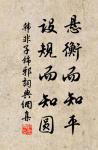 悬衡而知平
设规而知圆
韩非子饰邪词典网集